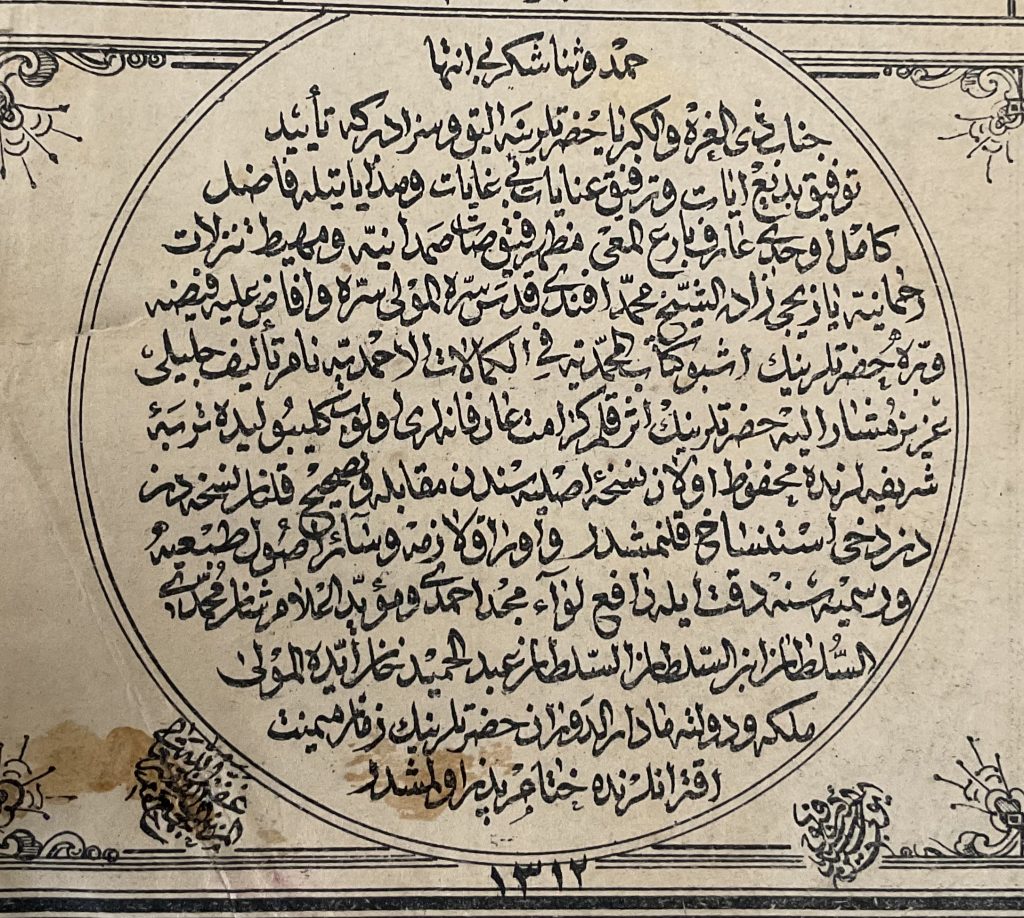 حمد وثنا شكر بى انتها
جناب ذى العزة والكبريا حضرتلرينه اليق وسزادركه تأييد
توفيق بديع ايات وترفيق عنايات بى غايات وصدايا يتيله فاضل
كامل اوحدى عارف بارع المعى مظهر فيق صفات صمدانيه ومهبط تنزلات
رحمانيه يازيجى زاده الشيخ محمد افندى قدس سره المولى سره وافاض عليه فيضه
وبره حضرتلرينك اشبو كتاب المحمديه فى الكمالات الاحمديه نام تأليف جليلى
عزيز مشار اليه حضرتلرينك اثر قلم كرامت عارفانه لرى اولوب كليبوليده تربهٔ
شريفه لرنده محفوظ اولان نسخهٔ اصليه سندن مقابله وتصحيح قلنان نسخه دن
دخى استنساخ قلنمشدر واوراق لازمه وسائر اصول طبعيه
ورسميه سنه دقت ايله رافع لوآء مجد احمدى ومؤيد اعلام شان محمدى
السلطان ابن السلطان السلطان عبد الحميد خان ايده المولى
ملكه ودولته مادار الدوران حضرتلرينك زمان ميمنت
اقترانلرنده ختام پذير اولمشدر
١٣١٢